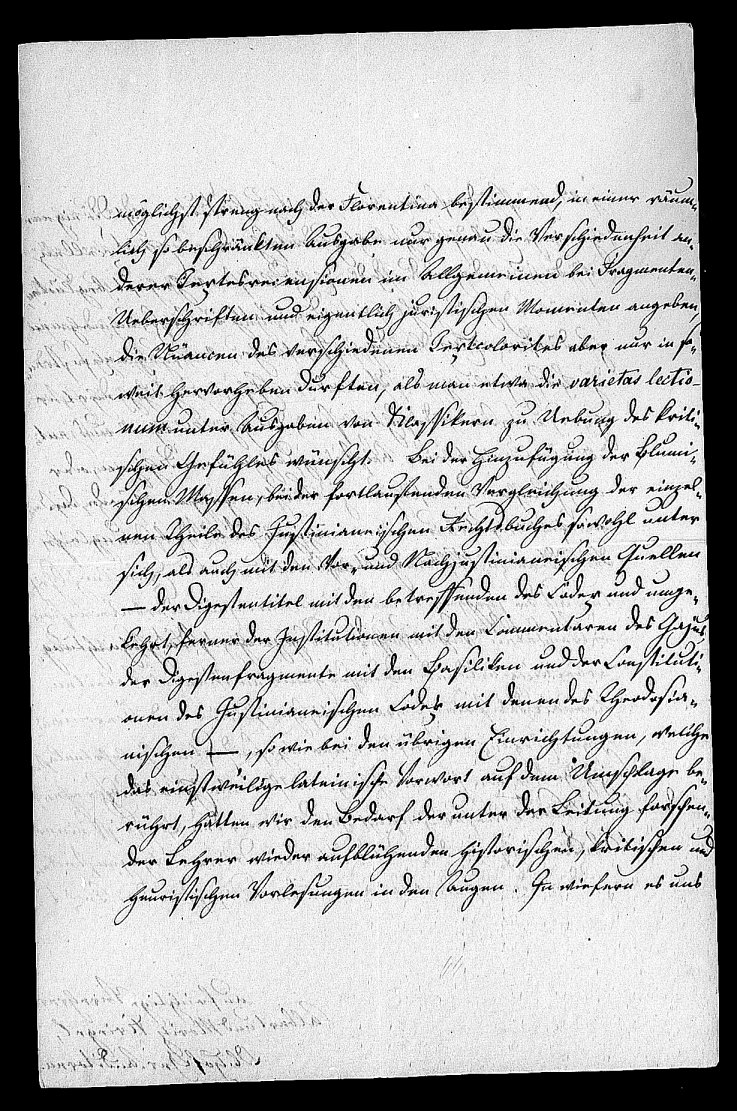 möglichst streng nach der Florentina bestimmend, in einer räum-
lich so beschränkten Ausgabe nur genau die Verschiedenheit an-
derer Textesrecensionen im Allgemeinen bei Fragmenten-
Ueberschriften und eigentlich juristischen Momenten angeben
die Nüancen des verschiedenen Textcolorites aber nur in so-
weit hervorheben durften, als man etwa die varietas lectio-
num unter Ausgaben von Klassikern zu Uebung des kriti-
schen Gefühles wünscht. Bei der Hinzufügung der Blumi-
schen Massen, bei der fortlaufenden Vergleichung der einzel-
nen Theile des Justinianeischen Rechtsbuches sowohl unter
sich, als auch mit den Vor- und Nachjustinianeischen Quellen
— der Digestentitel mit den betreffenden des Codex und umge-
kehrt, ferner der Institutionen mit den Commentaren des Gajus,
der Digestenfragmente mit den Basiliken und der Constituti-
onen des Justinianeischen Codex mit denen des Theodosia-
nischen —, so wie bei den übrigen Einrichtungen, welche
das einstweilige lateinische Vorwort auf dem Umschlage be-
rührt, hatten wir den Bedarf der unter der Leitung forschen-
der Lehrer wieder aufblühenden historischen, kritischen und
heuristischen Vorlesungen in den Augen. In wiefern es uns